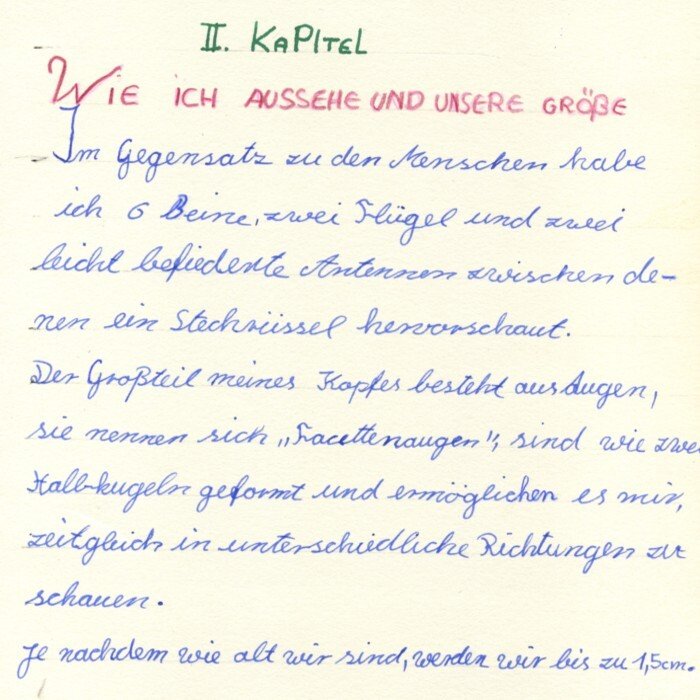 II. KAPITEL
WIE ICH AUSSEHE UND UNSERE GRÖßE
Im Gegensatz zu den Menschen habe
ich 6 Beine, zwei Flügel und zwei
leicht befiederte Antennen zwischen de-
nen ein Stechrüssel hervorschaut.
Der Großteil meines Kopfes besteht aus Augen,
sie nennen sich „Facettenaugen“, sind wie zwei
Halbkugeln geformt und ermöglichen es mir,
zeitgleich in unterschiedliche Richtungen zu
schauen.
Je nachdem wie alt wir sind, werden wir bis zu 1,5cm.